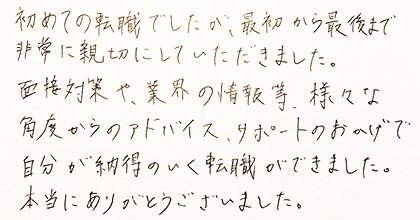 初めての転職でしたが、最初から最後まで
非常に親切にしていただきました。
面接対策や、業界の情報等、様々な
角度からのアドバイス、サポートのおかげで
自分が納得のいく転職ができました。
本当にありがとうございました。